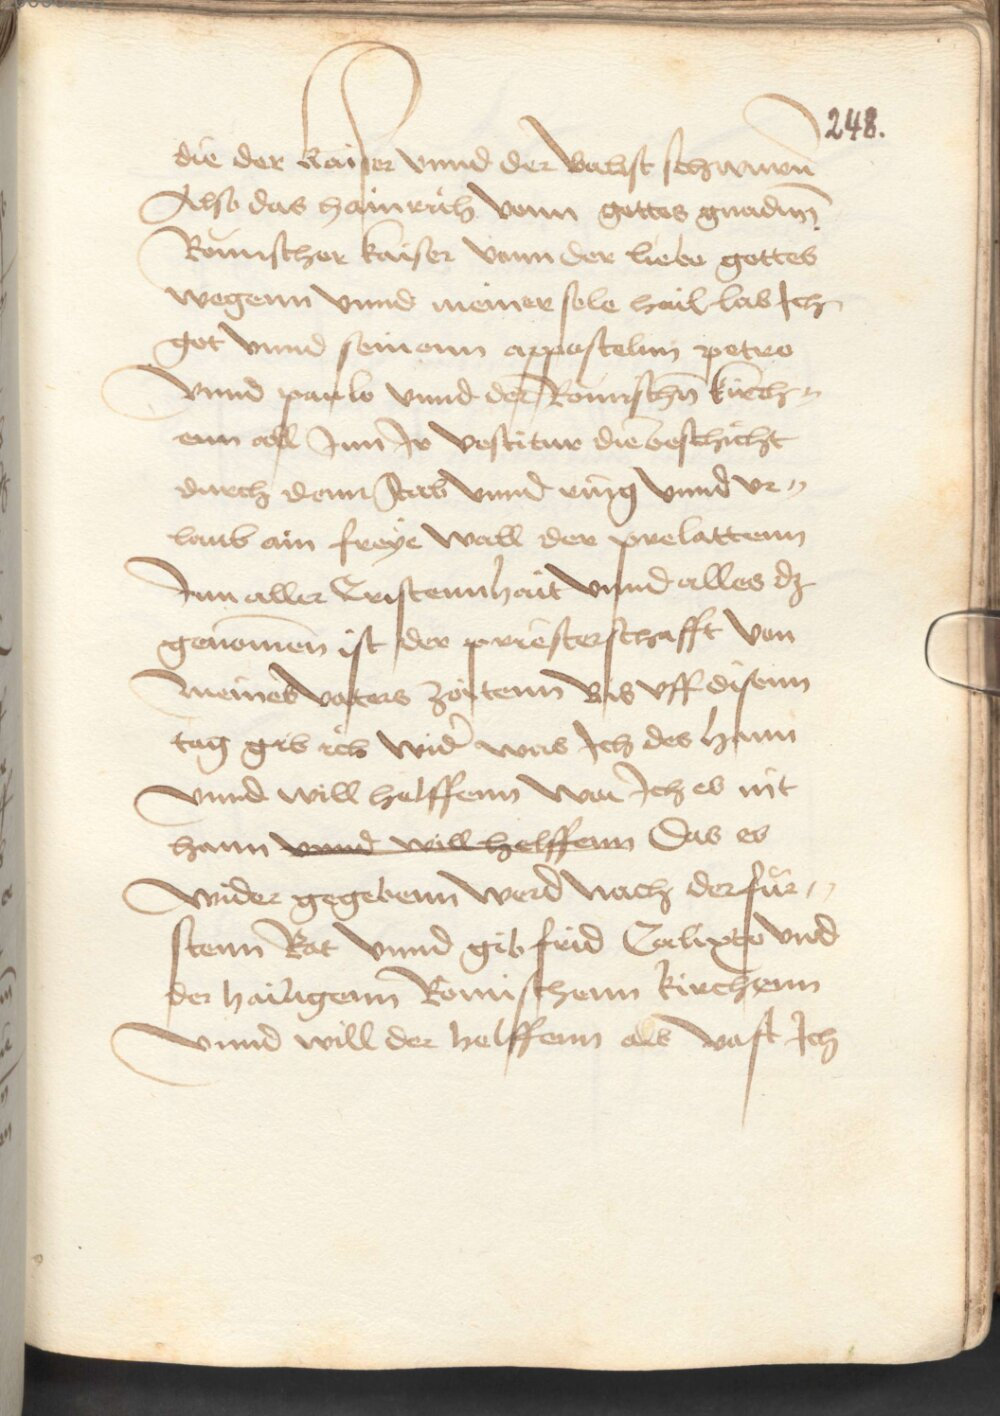 248.
die der kaiser vnnd der Babst schwurn
Also das hainrich vonn gottes gnadenn
Römischer kaiser vonn der liebe gottes
wegenn vnnd meiner sele hail las Ich
got vnnd seinenn appostelnn petro
vnnd paulo vnnd der Römischn kirch=
enn all Jnn Jr vestitur die beschicht
durch denn stab vnnd ring vnnd vr=
laub ain freye wall der prelattenn
Jnn aller Cristennhait vnnd alles dz
genomen ist der priesterschafft von
meines vatters zeitenn bis vff disenn
tag gib ich wider was Ich des hann
vnnd will helffenn wa Ich es nit
hann vnnd will helffenn Das es
wider gegebenn werd nach der für=
stenn Rat vnnd gib frid Calixto vnd
der hailigenn Romischenn kirchenn
vnnd will der helffenn als vast Ich